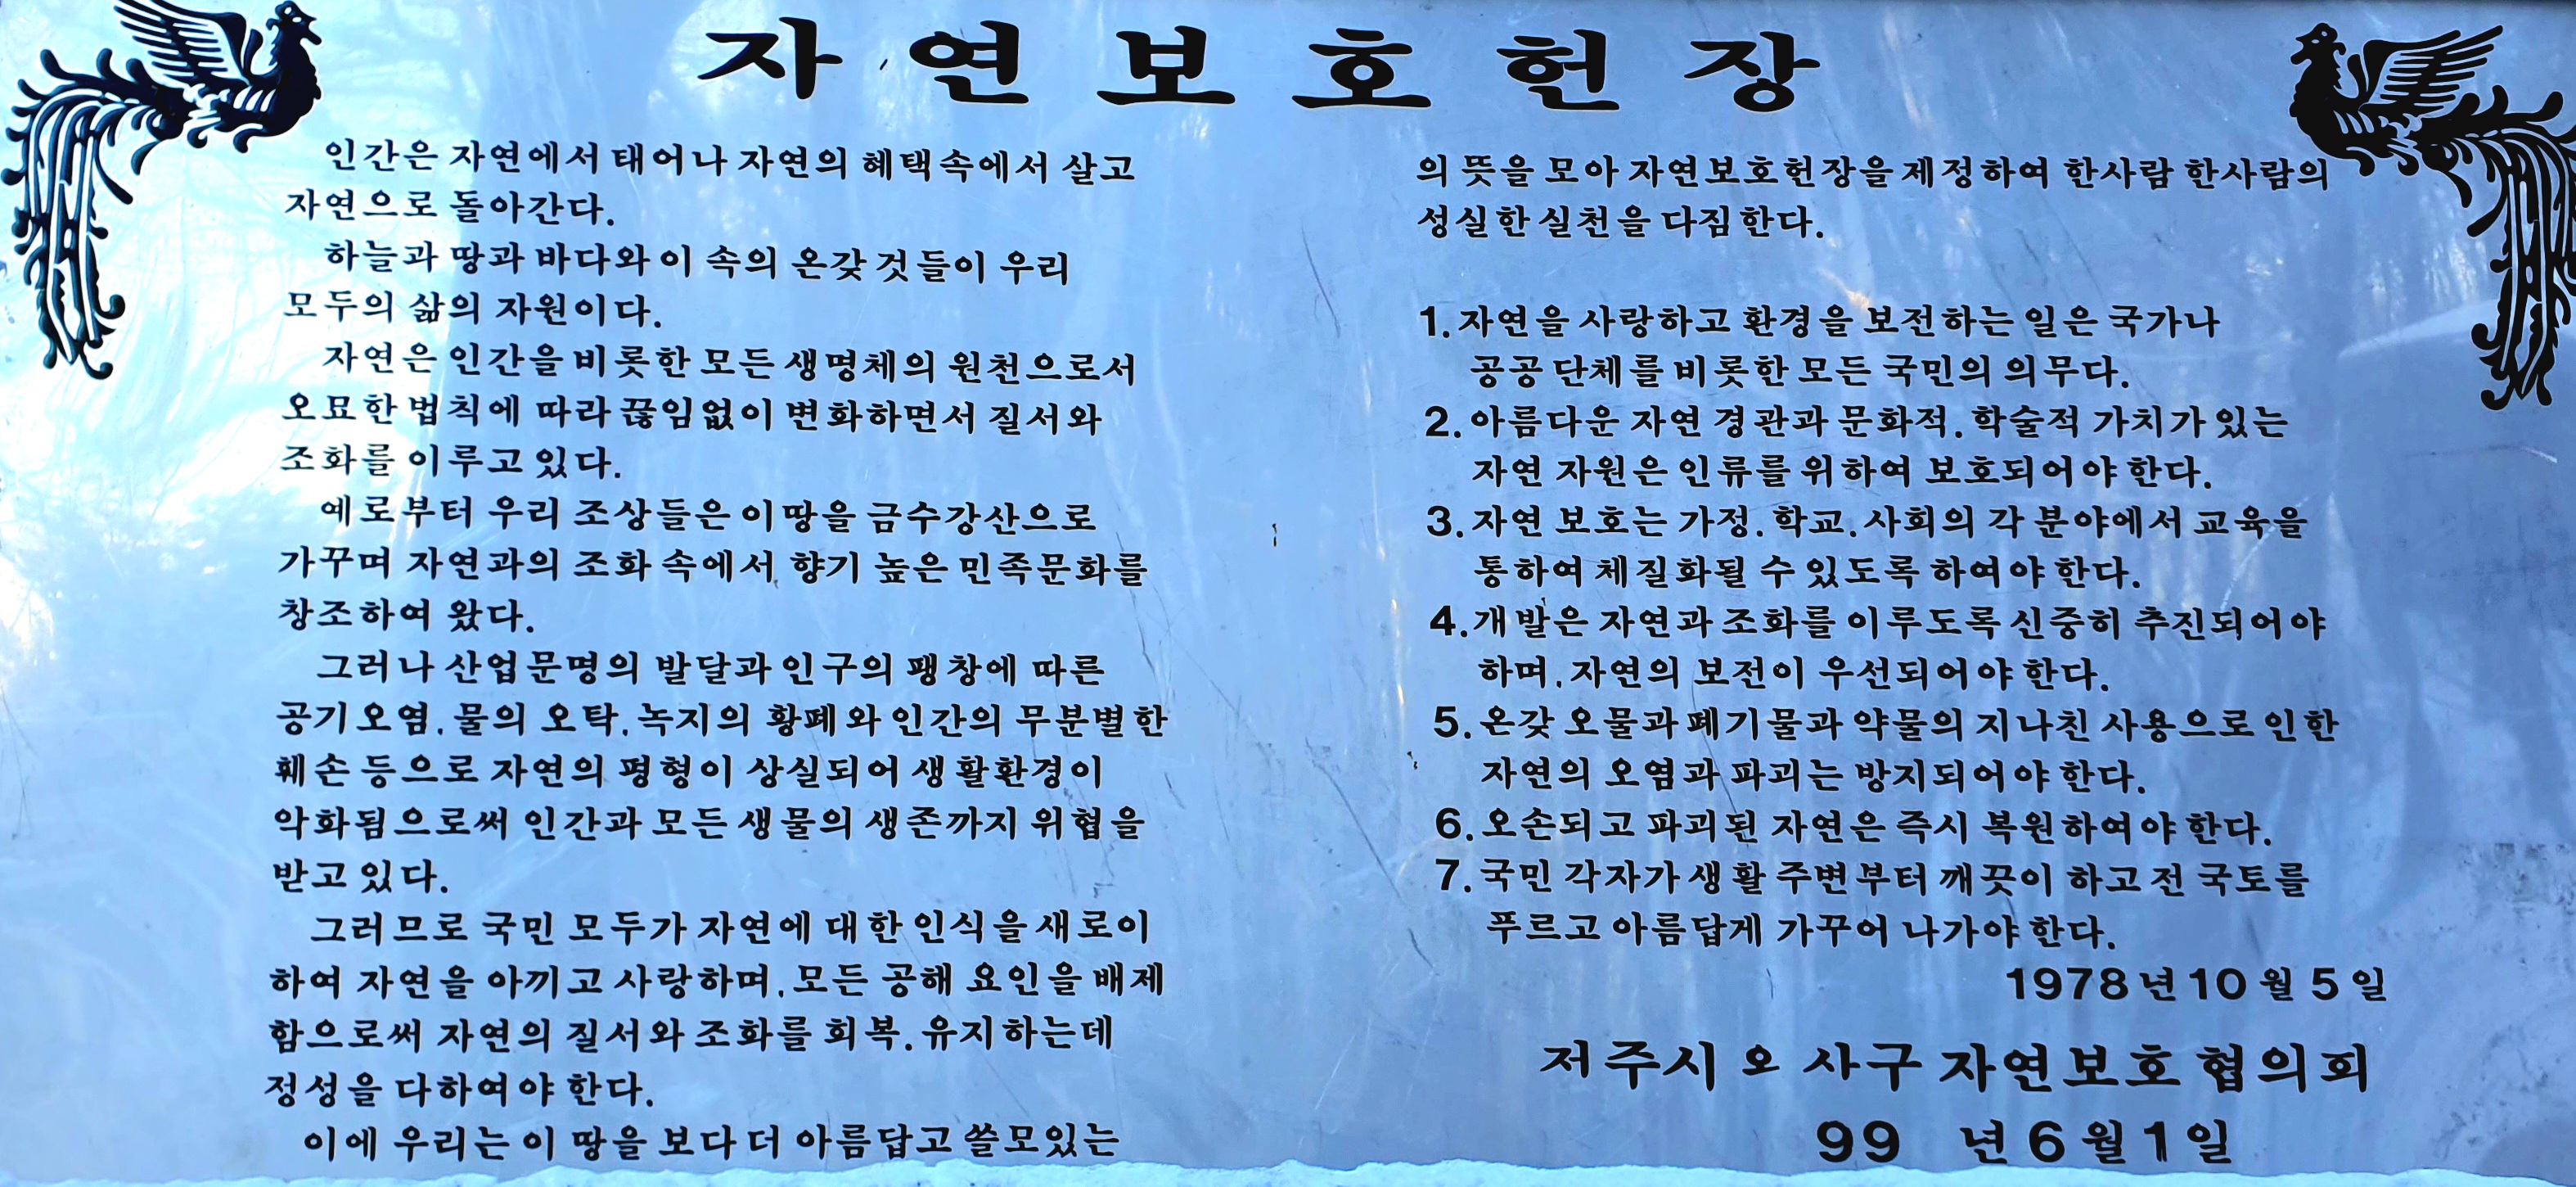 자연보호헌장
인간은 자연에서 태어나 자연의 혜택속에서 살고
자연으로 돌아간다.
하늘과 땅과 바다와 이 속의 온갖 것들이 우리
모두의 삶의 자원이다.
자연은 인간을 비롯한 모든 생명체의 원천으로서
오묘한 법칙에 따라 끊임없이 변화하면서 질서와
조화를 이루고 있다.
예로부터 우리 조상들은 이 땅을 금수강산으로
가꾸며 자연과의 조화 속에서 향기 높은 민족문화를
창조하여 왔다.
그러나 산업문명의 발달과 인구의 팽창에 따른
공기오염, 물의 오탁, 녹지의 황폐와 인간의 무분별한
훼손 등으로 자연의 평형이 상실되어 생활환경이
악화됨으로써 인간과 모든 생물의 생존까지 위협을
받고 있다.
그러므로 국민 모두가 자연에 대한 인식을 새로이
하여 자연을 아끼고 사랑하며, 모든 공해 요인을 배제
함으로써 자연의 질서와 조화를 회복, 유지하는데
정성을 다하여야 한다.
이에 우리는 이 땅을 보다 더 아름답고 쓸모있는
의 뜻을 모아 자연보호헌장을 제정하여 한사람 한사람의
성실한 실천을 다짐한다.
1. 자연을 사랑하고 환경을 보전하는 일은 국가나
공공 단체를 비롯한 모든 국민의 의무다.
2. 아름다운 자연 경관과 문화적, 학술적 가치가 있는
자연 자원은 인류를 위하여 보호되어야 한다.
3. 자연 보호는 가정, 학교, 사회의 각 분야에서 교육을
통하여 체질화될 수 있도록 하여야 한다.
4. 개발은 자연과 조화를 이루도록 신중히 추진되어야
하며, 자연의 보전이 우선되어야 한다.
5. 온갖 오물과 폐기물과 약물의 지나친 사용으로 인한
자연의 오염과 파괴는 방지되어야 한다.
6. 오손되고 파괴된 자연은 즉시 복원하여야 한다.
7. 국민 각자가 생활 주변부터 깨끗이 하고 전 국토를
푸르고 아름답게 가꾸어 나가야 한다.
1978년 10월 5일
저주시 오 사구 자연보호협의회
99 년 6월 1일